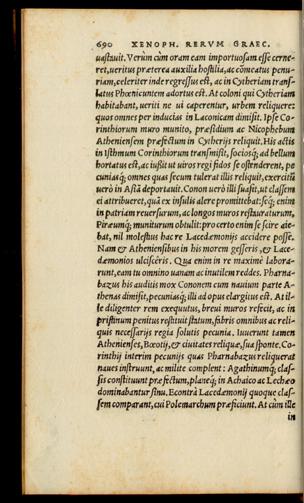 690 XENOPH. RERVM GRAEC.
uastauit. Verùm cùm oram eam importuosam esse cerne-
ret, ueritus præterea auxilia hostilia, ac cõmeatus penu-
riam, celeriter inde regressus est, ac in Cytheriam trans-
latus Phœnicuntem adortus est. At coloni qui Cytheriam
habitabant, ueriti ne ui caperentur, urbem reliquere:
quos omnes per inducias in Laconicam dimisit. Ipse Co-
rinthiorum muro munito, præsidium ac Nicophebum
Atheniensem præfectum in Cytherijs reliquit. His actis
in Isthmum Corinthiorum transmisit, sociosq́; ad bellum
hortatus est, ac iußit ut uiros regi fidos se ostenderent, pe
cuniasq́; omnes quas secum tulerat illis reliquit, exercitũ
uerò in Asiã deportauit. Conon uerò illi suasit, ut classem
ei attribueret, quã ex insulis alere promittebat: seq́; enim
in patriam reuersurum, ac longos muros restauraturum,
Piræumq́; muniturum obtulit: pro certo enim se scire aie-
bat, nil molestius hac re Lacedæmonijs accidere posse.
Nam & Atheniensibus in his morem gesseris, & Lace-
dæmonios ulcisceris. Qua enim in re maximè labora-
runt, eam tu omnino uanam ac inutilem reddes. Pharna-
bazus his auditis mox Cononem cum nauium parte A-
thenas dimisit, pecuniasq́; illi ad opus elargitus est. At il-
le diligenter rem exequutus, breui muros refecit, ac in
pristinum penitus restituit statum, fabris omnibus ac reli-
quis necessarijs regia solutis pecunia. Iuuerunt tamen
Athenienses, Bœotij, & ciuitates reliquæ, sua sponte. Co-
rinthij interim pecunijs quas Pharnabazus reliquerat
naues instruunt, ac milite complent: Agathinumq́; clas-
sis constituunt præfectum, planeq́; in Achaico ac Lechæo
dominabantur sinu. Econtrà Lacedæmonij quoque clas-
sem comparant, cui Polemarchum præficiunt. At cùm ille
in